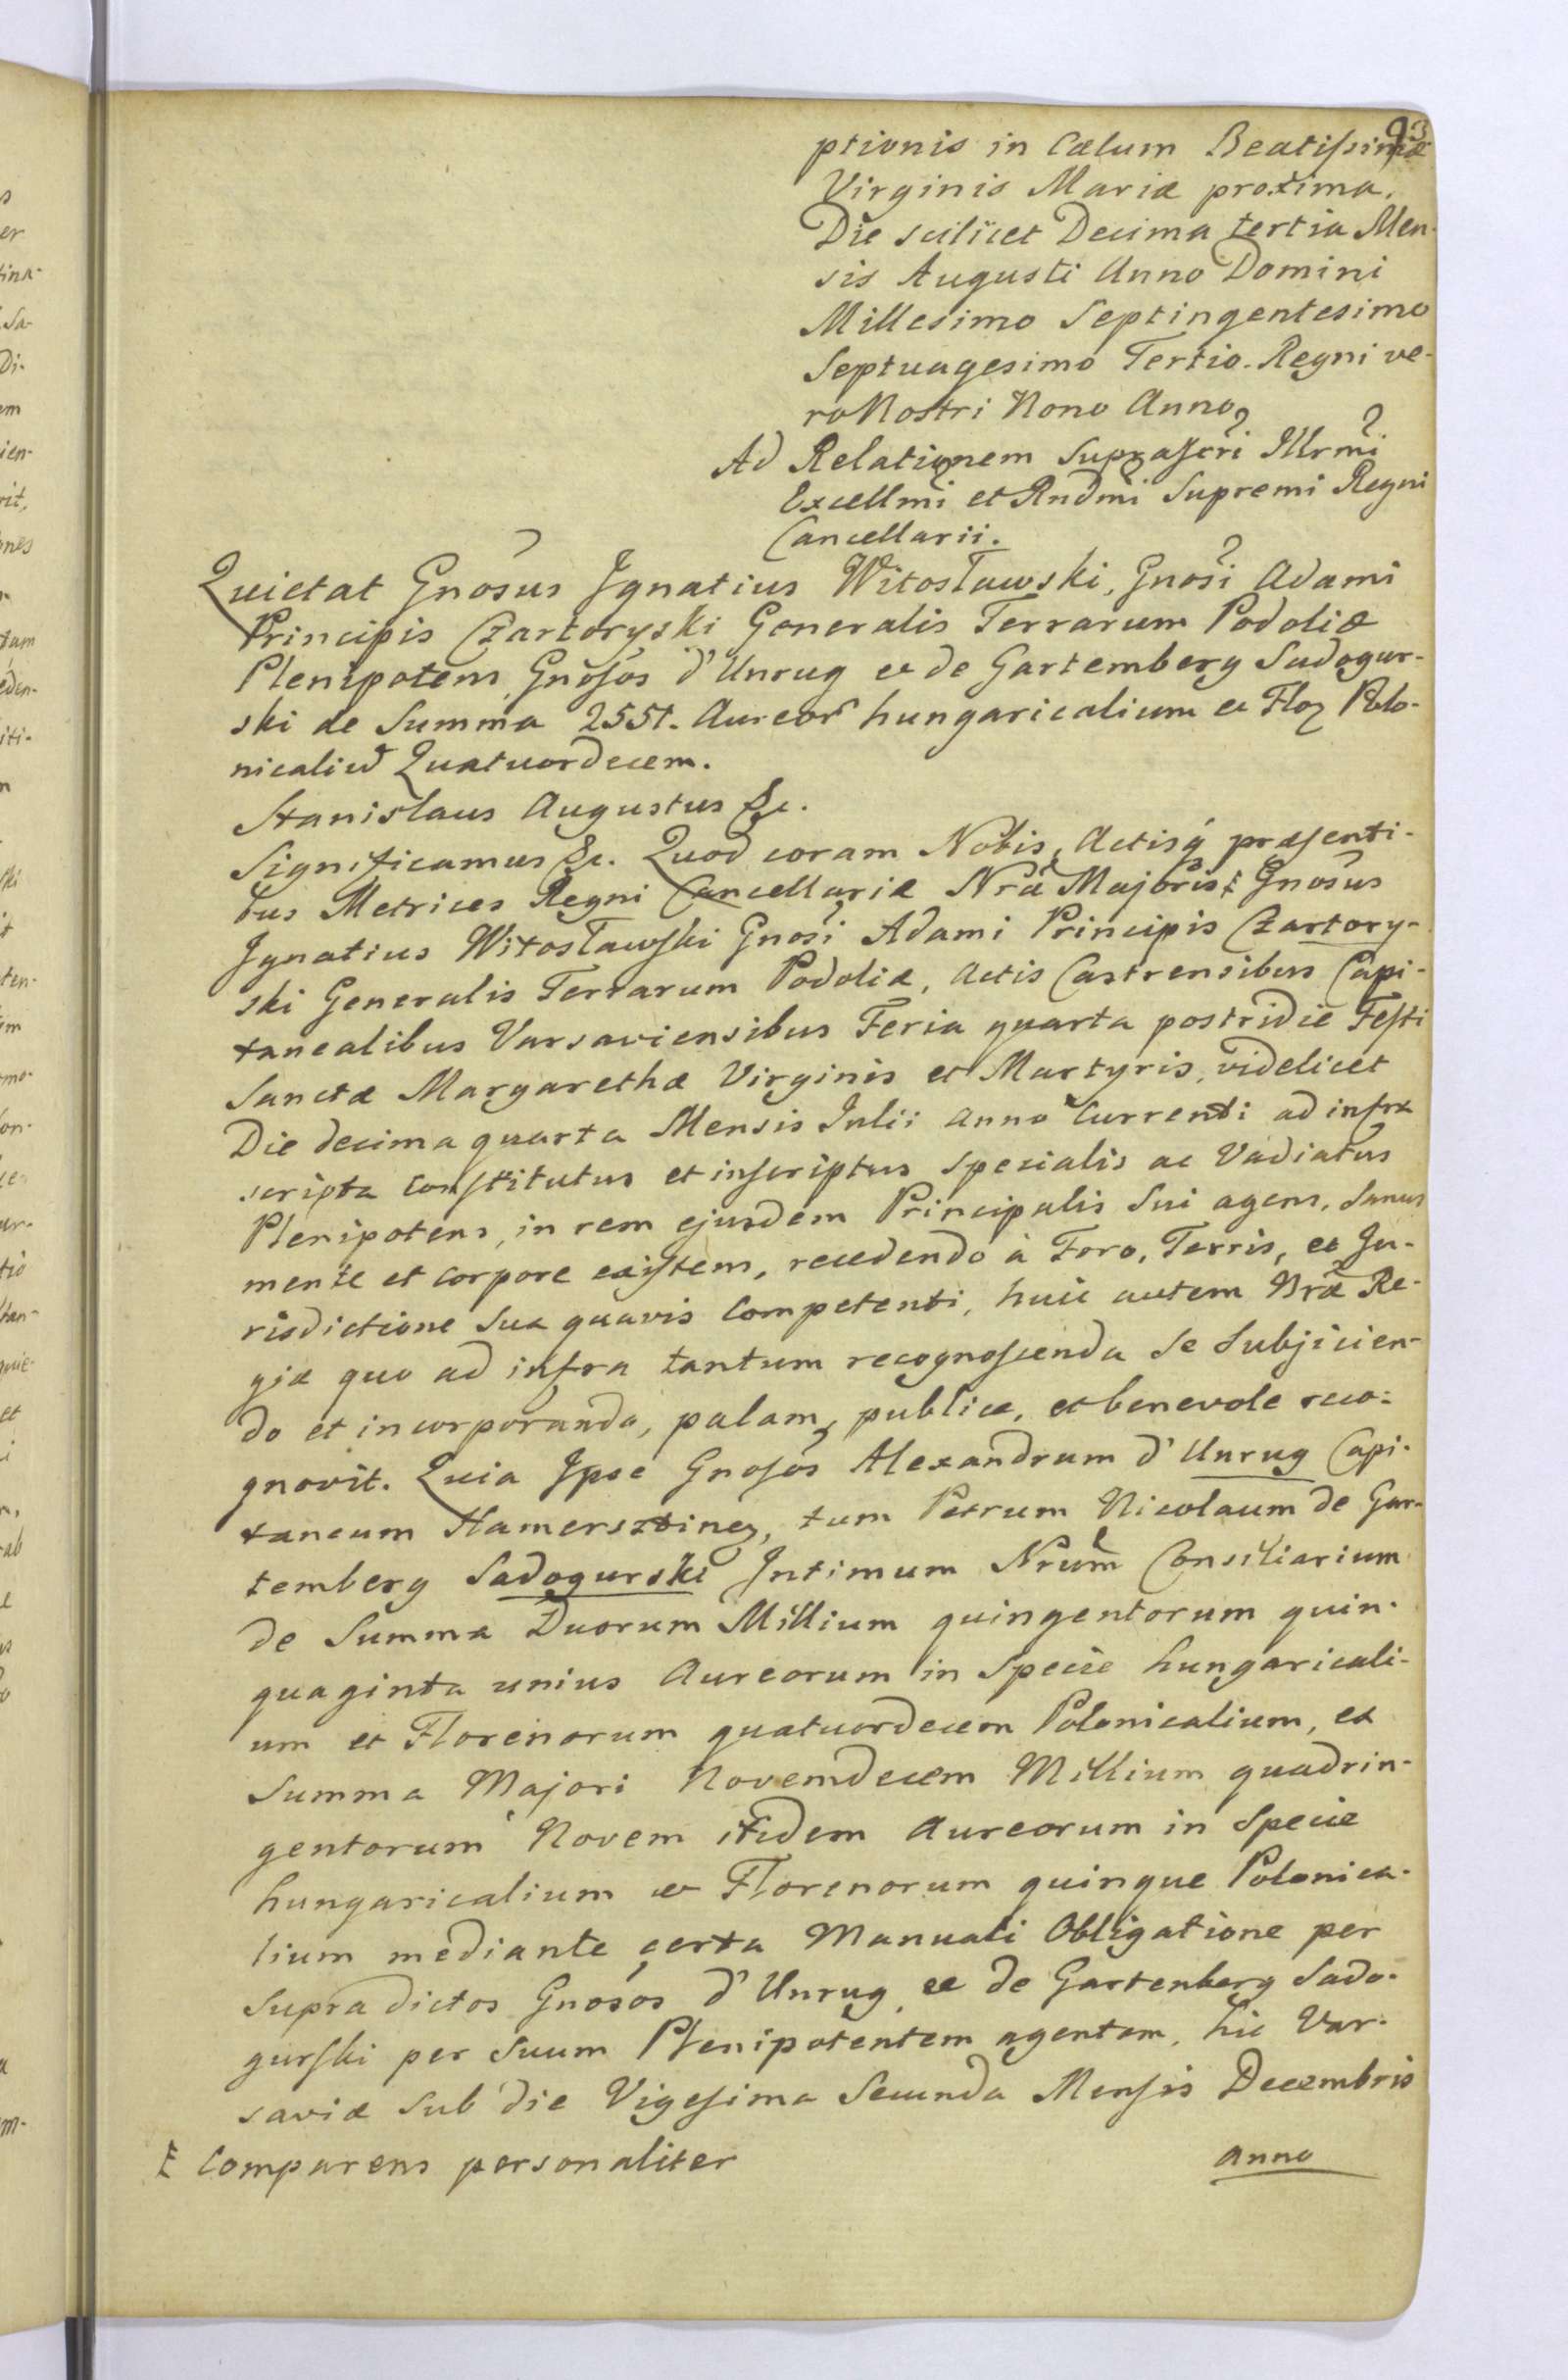 93
ptionis in Cælum Beatissimæ
Virginis Mariæ proxima.
Die scilicet Decima tertia Men-
sis Augusti Anno Domini
Millesimo Septingentesimo
Septuagesimo Tertio. Regni ve-
ro Nostri Nono Anno
Ad Relationem Suprascri Illrmi
Excellmi et Rndmi Supremi Regni
Cancellarii.
Quietat Gnosus Ignatius Witosławski, Gnosi Adami
Principis Czartoryski Generalis Terrarum Podoliæ
Plenipotens, Gnosos d'Unrug et de Gartemberg Sadogur-
ski de Summa 2551. Aureor hungaricalium et Flor Polo-
nicaliu Quatuordecem.
Stanislaus Augustus &c.
Significamus &c. Quod coram Nobis, Actisq præsenti-
bus Metrices Regni Cancellariæ Nræ Majoris ŧ Gnosus
Ignatius Witosławski Gnosi Adami Principis Czartory-
ski Generalis Terrarum Podoliæ, Actis Castrensibus Capi-
tanealibus Varsaviensibus Feria quarta postridie Festi
Sanctæ Margarethæ Virginis et Martyris, videlicet
Die decima quarta Mensis Julii Anno Currenti ad infra
scripta Constitutus et inscriptus Specialis ac Vadiatus
Plenipotens, in rem ejusdem Principalis Sui agens, Sanus
mente et Corpore existens, recedendo à Foro, Terris, et Ju-
risdictione Sua quavis Competenti, huic autem Nræ Re-
giæ quo ad infra tantum recognoscenda Se Subjicien-
do et incorporando, palam, publice, et benevole reco-
gnovit. Quia Ipse Gnosos Alexandrum d'Unrug Capi-
taneum Hamersztinen, tum Petrum Nicolaum de Gar-
temberg Sadogurski Intimum Nrum Consiliarium
de Summa Duorum Millium quingentorum quin-
quaginta unius Aureorum in Specie hungaricali-
um et Florenorum quatuordecem Polonicalium, ex
Summa Majori Novemdecem Millium quadrin-
gentorum Novem itidem Aureorum in Specie
hungaricalium et Florenorum quinque Polonica-
lium mediante certa Manuali Obligatione per
Supradictos Gnosos d'Unrug et de Gartenberg Sado-
gurski per Suum Plenipotentem agentem, hic Var-
saviæ Sub die Vigesima Secunda Mensis Decembris
ŧ Comparens personaliter
Anno